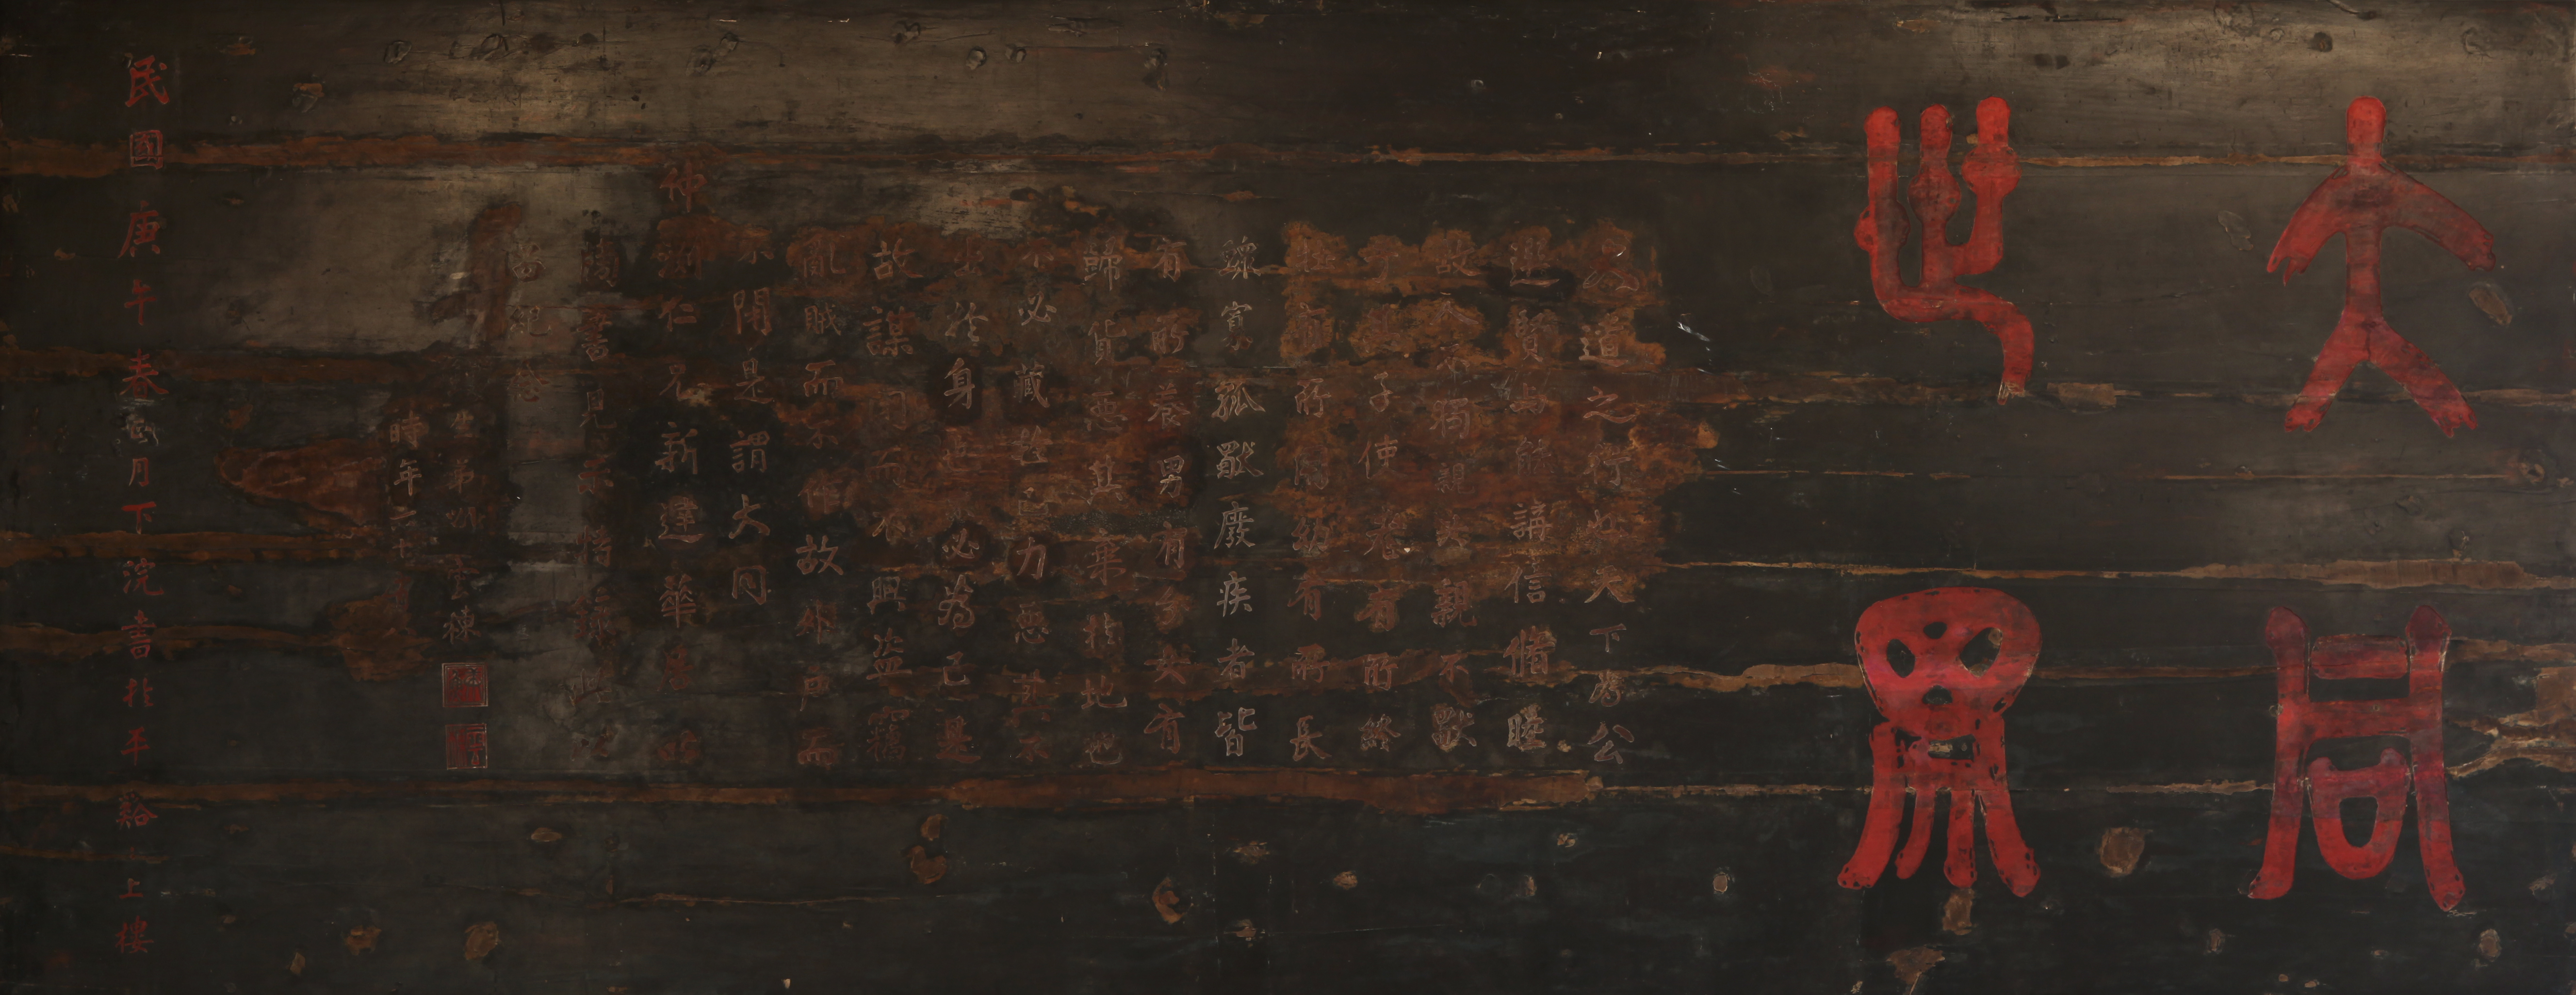 大同
世界
大道之行也天下為公
選賢與能講信脩睦
故人不獨親其親不獨
子其子使老有所終
壯有所用幼有所長
鰥寡孤獨廢疾者皆
有所養男有分女有
歸貨惡其棄於地也
不必藏於己力惡其不
出於身也不必為己是
故謀閉而不興盜竊
亂賊而不作故外戶而
不閉是謂大同
仲淵仁兄新建華居
書見示將錄此以
留紀念
弟
時年六十
民國庚午春月下浣書於平谿上樓